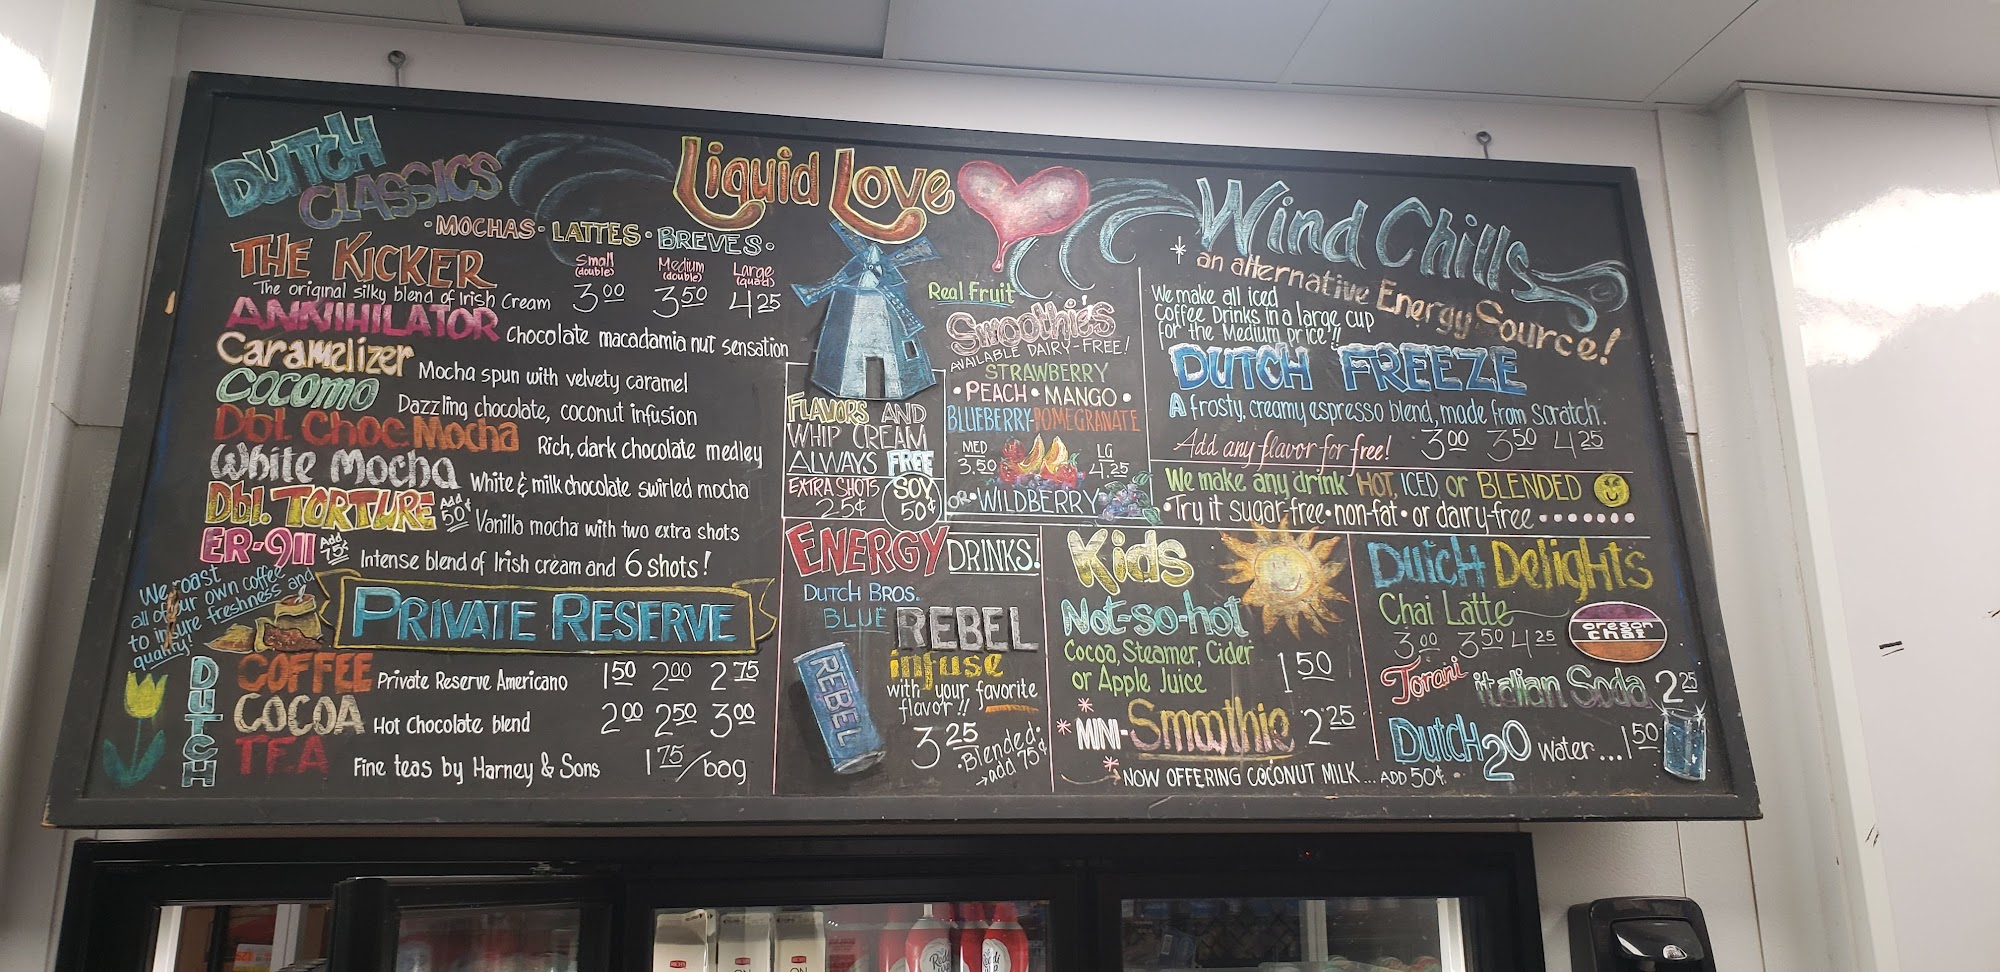 DUTCH
CLASSICS
• MOCHAS • LATTES • BREVES •
THE KICKER
Small (double) Medium (double) Large (quad)
The original silky blend of Irish Cream 3 00 3 50 4 25
ANNIHILATOR Chocolate macadamia nut sensation
Caramelizer Mocha spun with velvety caramel
Cocomo Dazzling chocolate, coconut infusion
Dbl. Choc. Mocha Rich, dark chocolate medley
White Mocha White & milk chocolate swirled mocha
Dbl. TORTURE Add 50¢ Vanilla mocha with two extra shots
ER-911 Add 75¢ Intense blend of Irish cream and 6 shots!
We roast
all of our own coffee
to insure freshness and
quality!
PRIVATE RESERVE
DUTCH
COFFEE Private Reserve Americano 1 50 2 00 2 75
COCOA Hot Chocolate blend 2 00 2 50 3 00
TEA Fine teas by Harney & Sons 1 75/bag
Liquid Love
FLAVORS AND
WHIP CREAM
ALWAYS FREE
EXTRA SHOTS
25¢
SOY
50¢
Real Fruit
Smoothies
AVAILABLE DAIRY-FREE!
STRAWBERRY
• PEACH • MANGO •
BLUEBERRY-POMEGRANATE
MED
3.50
LG
4.25
OR • WILDBERRY
ENERGY DRINKS!
DUTCH BROS.
BLUE REBEL
infuse
with your favorite
flavor!!
REBEL
3 25
• Blended:
add 75¢
Wind Chills
* an alternative Energy Source!
We make all iced
Coffee Drinks in a large cup
for the Medium price!!
DUTCH FREEZE
A frosty, creamy espresso blend, made from scratch.
Add any flavor for free! 3 00 3 50 4 25
We make any drink HOT, ICED, or BLENDED
• Try it sugar-free • non-fat • or dairy-free
Kids
Not-so-hot
Cocoa, Steamer, Cider
or Apple Juice
1 50
* MINI-Smoothie 2 25
* NOW OFFERING COCONUT MILK... ADD 50¢
Dutch Delights
Chai Latte
3 00 3 50 4 25
oregon
chai
Torani italian Soda 2 25
Dutch 2O water...1 50